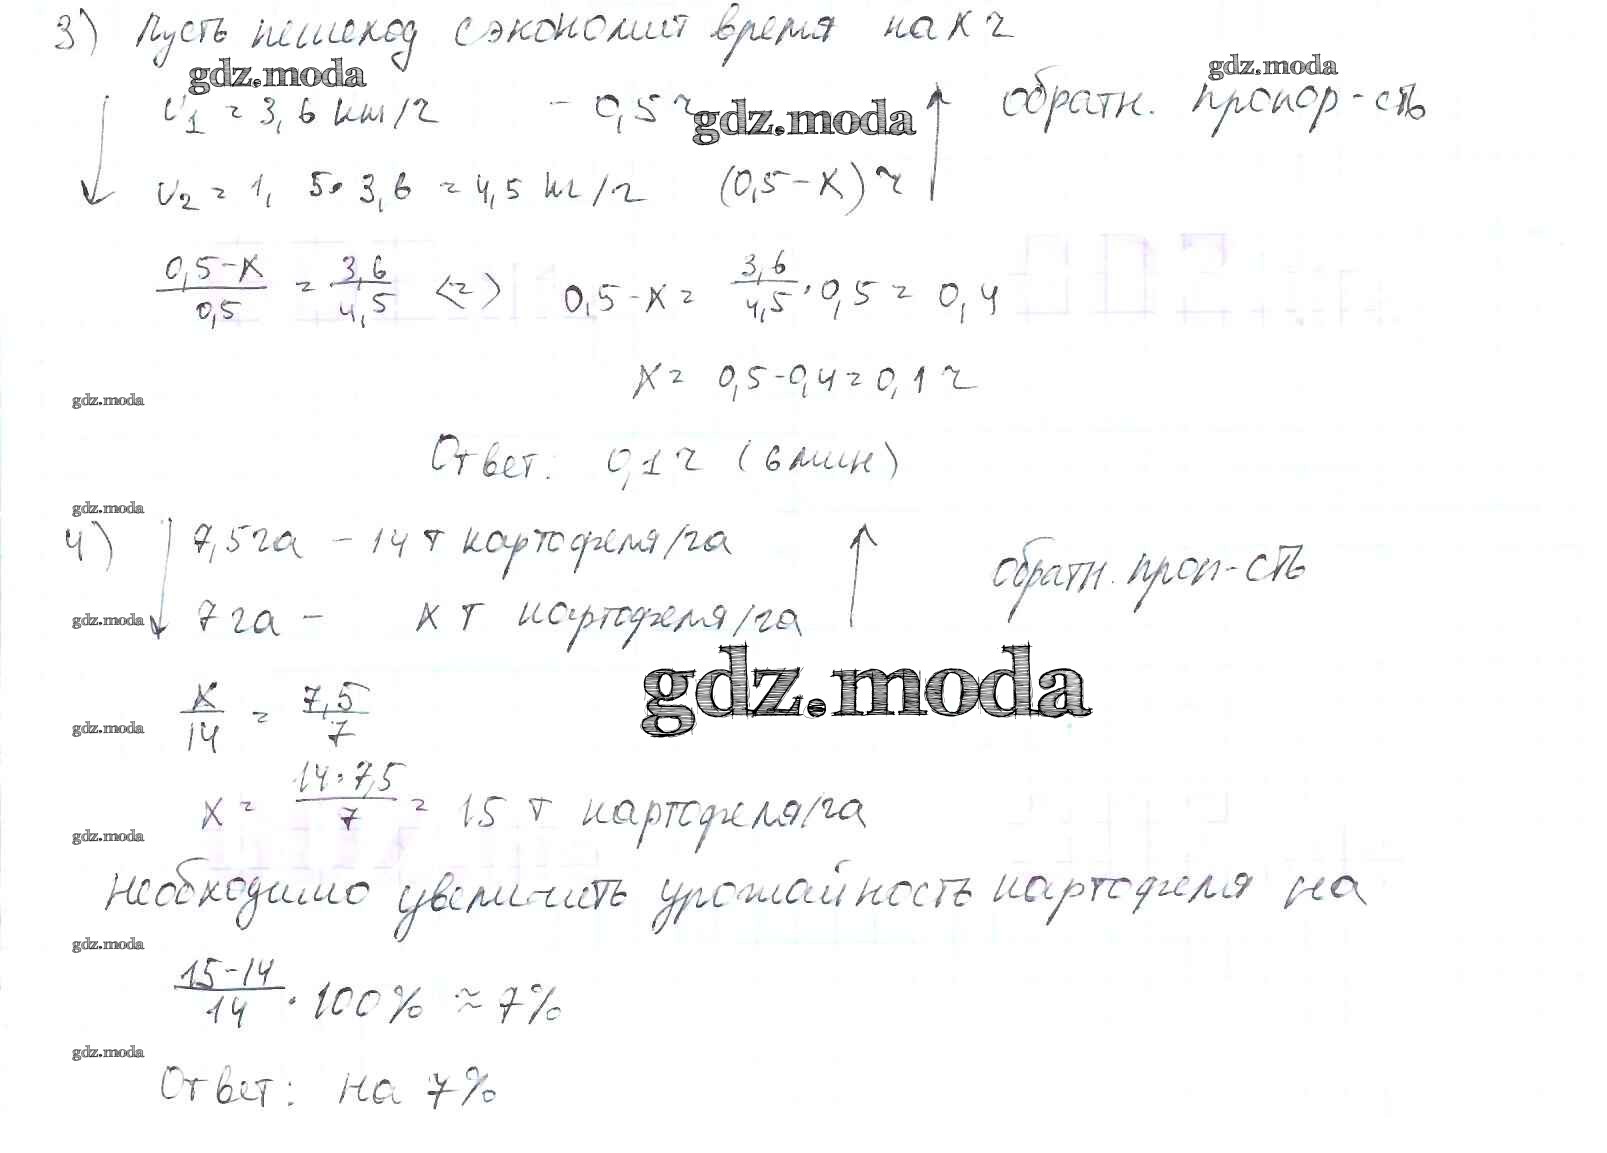 3) Пусть пешеход сэкономит время на x ч
gdz.moda
gdz.moda
v₁ = 3,6 км/ч - 0,5 ч обратн. пропор-сть
gdz.moda
v₂ = 1, 5·3,6 = 4,5 км/ч (0,5-x) ч
(0,5-x)/0,5 = 3,6/4,5 <=> 0,5-x = 3,6/4,5 · 0,5 = 0,4
x = 0,5-0,4 = 0,1 ч
gdz.moda
Ответ: 0,1 ч (6 мин)
gdz.moda
4) 7,5 га - 14 т картофеля/га обратн. проп-сть
gdz.moda
7 га - x т картофеля/га
gdz.moda
x/14 = 7,5/7
gdz.moda
x = 14·7,5/7 = 15 т картофеля/га
gdz.moda
Необходимо увеличить урожайность картофеля на
gdz.moda
15-14/14 · 100% ≈ 7%
gdz.moda
Ответ: на 7%